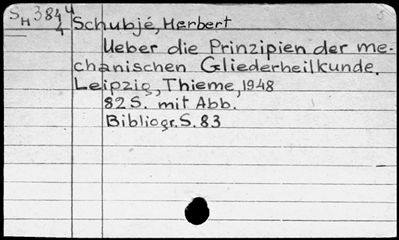 SH 384 4/4
Schubjé, Herbert
Ueber die Prinzipien der me-
chanischen Gliederheilkunde.
Leipzig, Thieme, 1948
82 S. mit Abb.
Bibliogr. S. 83